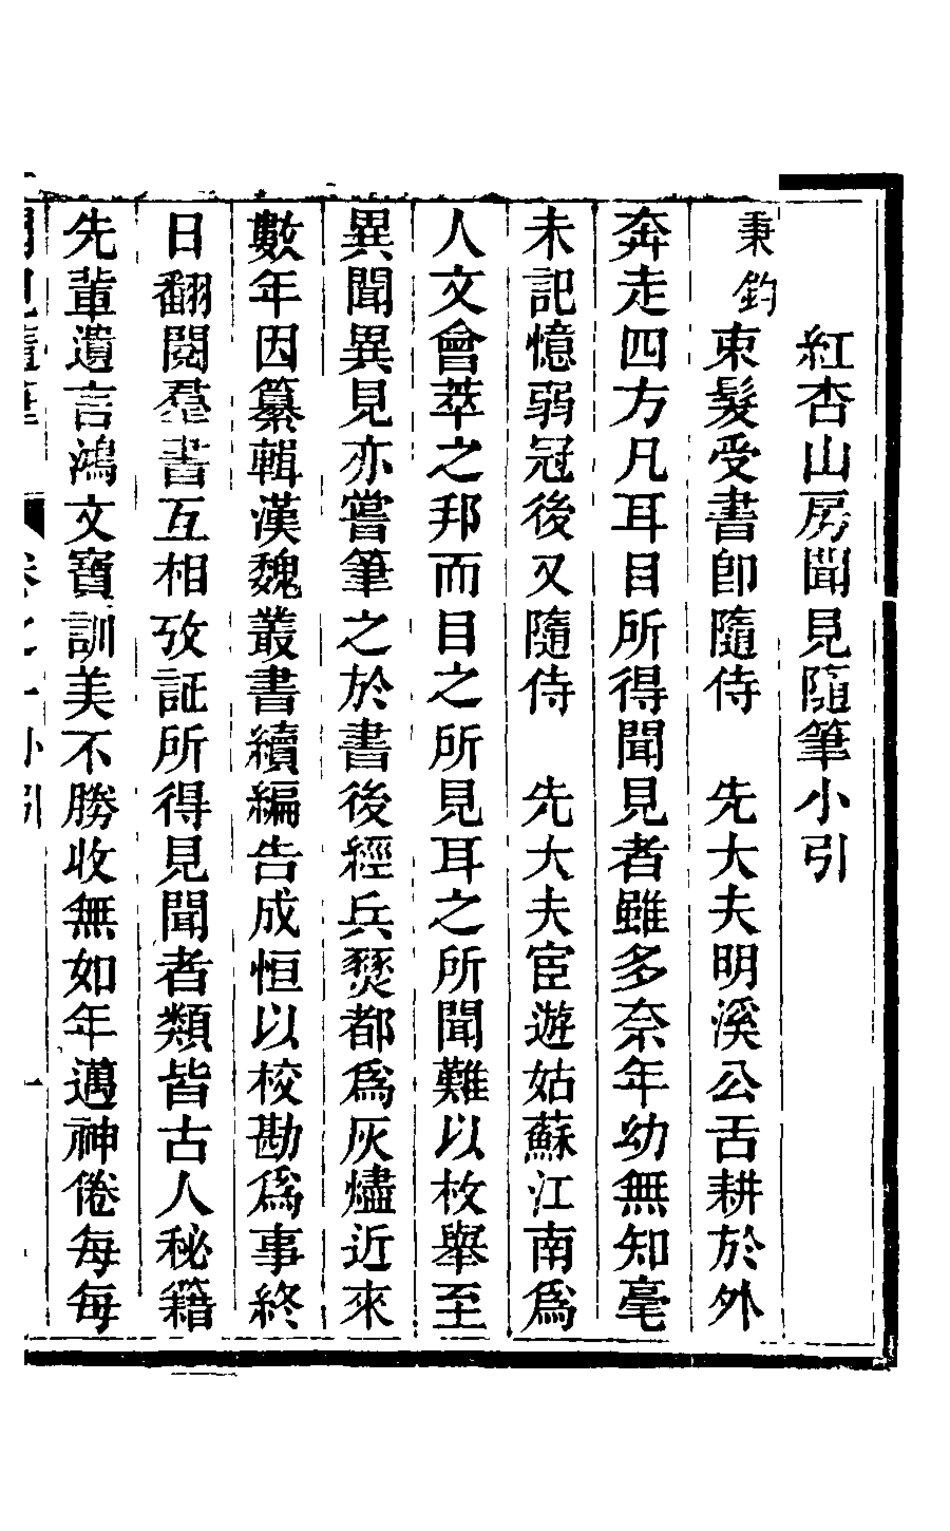 紅杏山房聞見隨筆小引
秉鈞束髮受書卽隨侍　先大夫明溪公舌耕於外
奔走四方凡耳目所得聞見者雖多奈年幼無知毫
未記憶弱冠後又隨侍　先大夫宦遊姑蘇江南爲
人文會萃之邦而目之所見耳之所聞難以枚舉至
異聞異見亦嘗筆之於書後經兵燹都爲灰燼近來
數年因纂輯漢魏叢書續編告成恒以校勘爲事終
日翻閱羣書互相攷証所得見聞者類皆古人秘籍
先輩遺言鴻文寶訓美不勝收無如年邁神倦每每